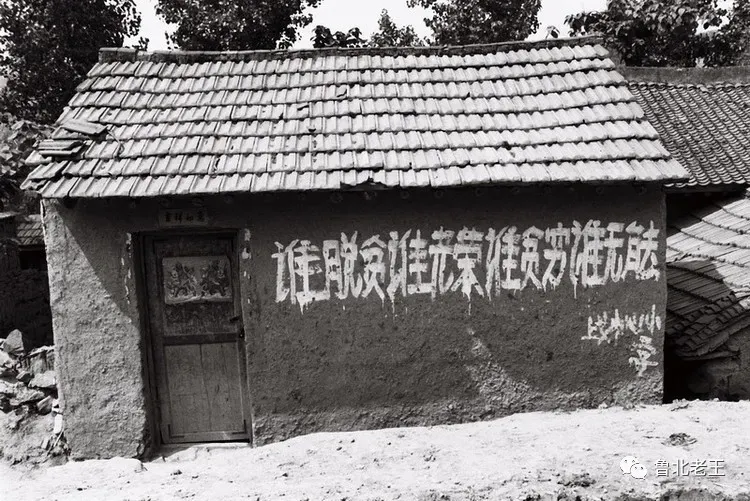 谁脱贫谁光荣谁贫穷谁无能
小
学
鲁北老王